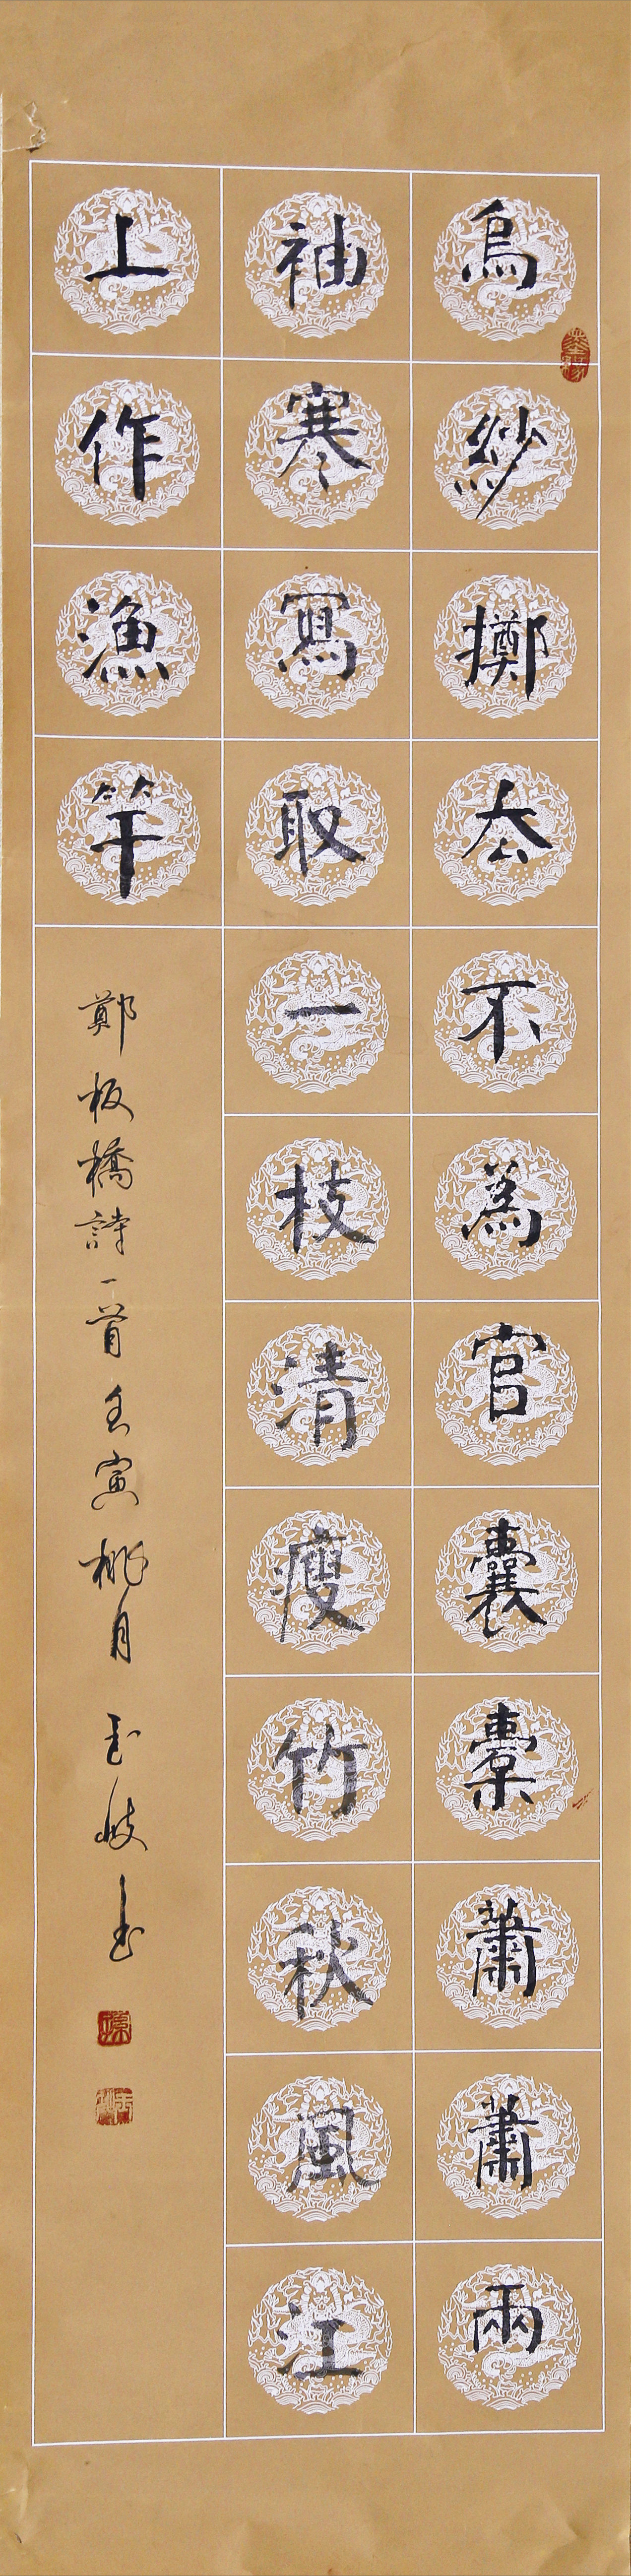 烏紗擲厺不為官囊橐蕭蕭兩
袖寒寫取一枝清瘦竹秋風江
上作漁竿
鄭板橋詩一首壬寅桃月 玉岐书